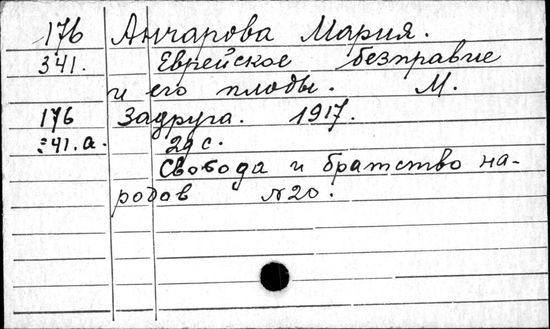 176 Анчарова Мария.
341. Еврейское безправие
и его плоды. М.
176 Задруга. 1917.
341.а. 29 с.
Свобода и братство на-
родов №20.